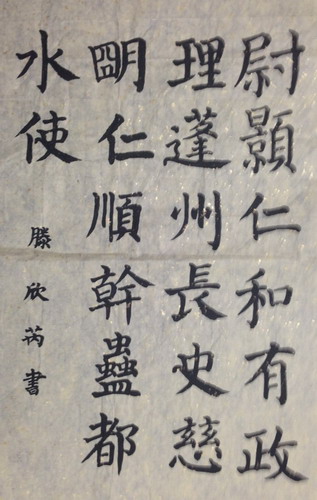 尉顥仁和有政
理蓬州長史慈
朙仁順幹蠱都
水使
滕欣芮書